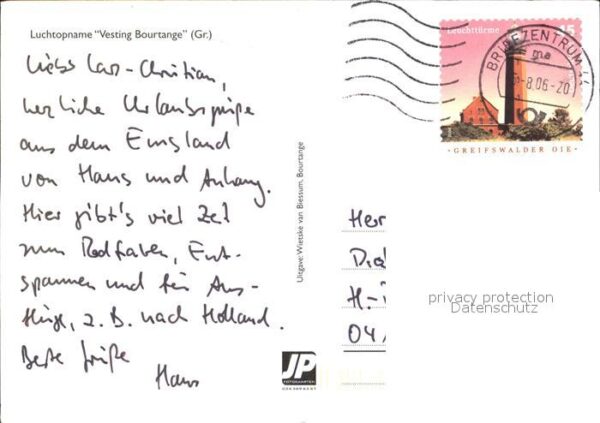 Luchtopname "Vesting Bourtange" (Gr.)
Liebe Lars-Christian,
herzliche Urlaubsgrüße
aus dem Emsland
von Hans und Anhang.
Hier gibt's viel Zeit
zum Radfahren, Ent-
spannen und für Aus-
flüge, z. B. nach Holland.
Beste Grüße
Hans
Uitgave: Wietske van Blessum, Bourtange
JP
FOTOKAARTEN
Leuchttürme
45
BRIEFZENTRUM
-8.06-20
GREIFSWALDER OIE
Her
H-
04
privacy protection
Datenschutz